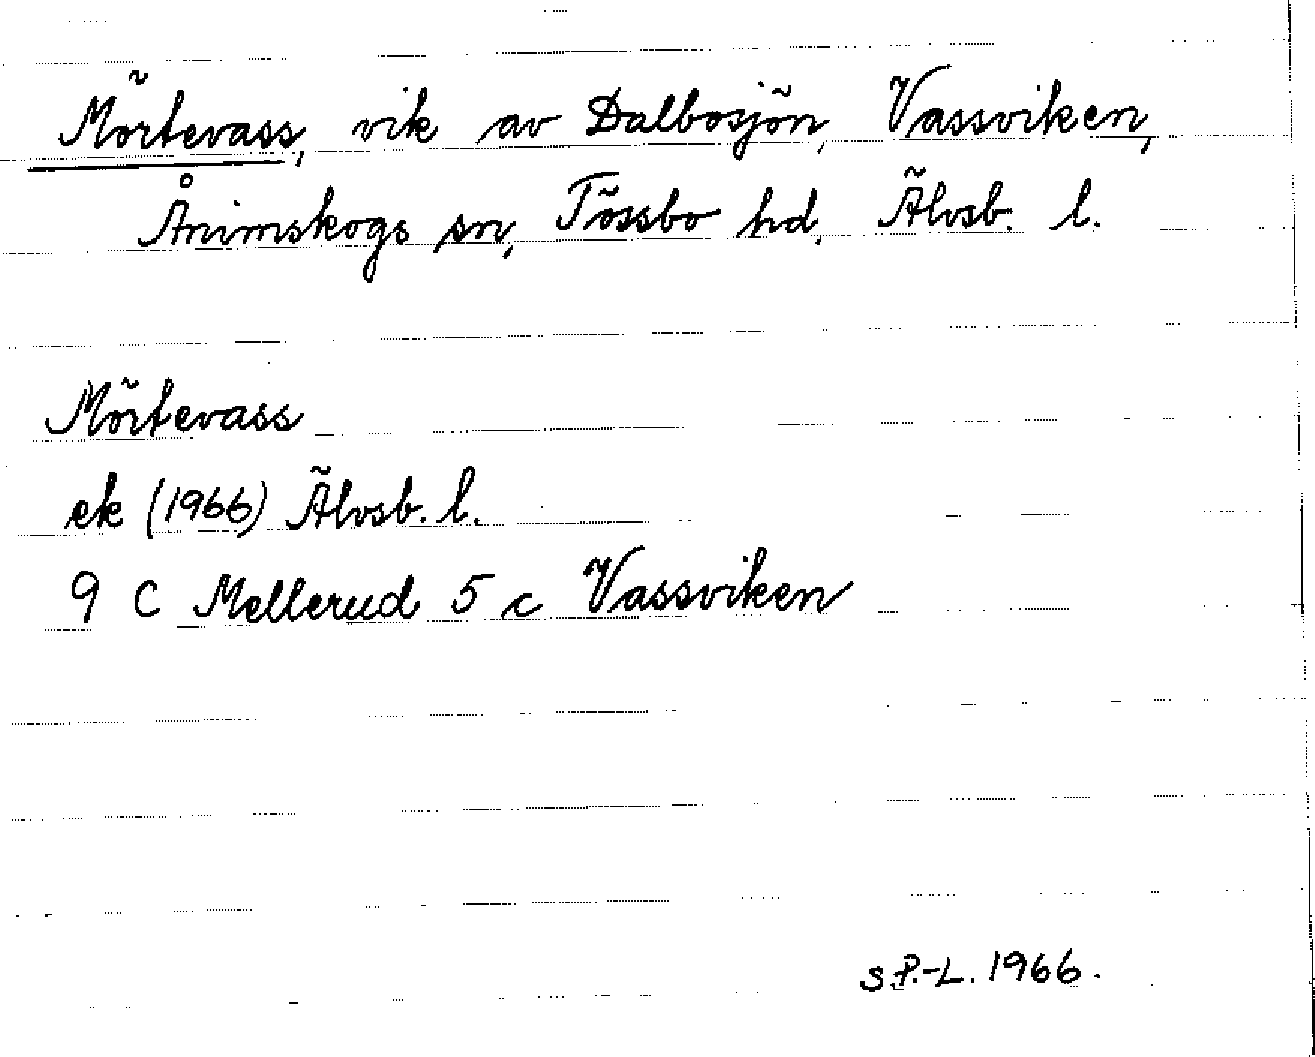 Mörtevass, vik av Dalbosjön, Vassviken,
Ånimskogs sn, Tössbo hd, Älvsb. l.
Mörtevass
ek (1966) Älvsb. l.
9 C Mellerud 5 c Vassviken
S.P.-L. 1966.